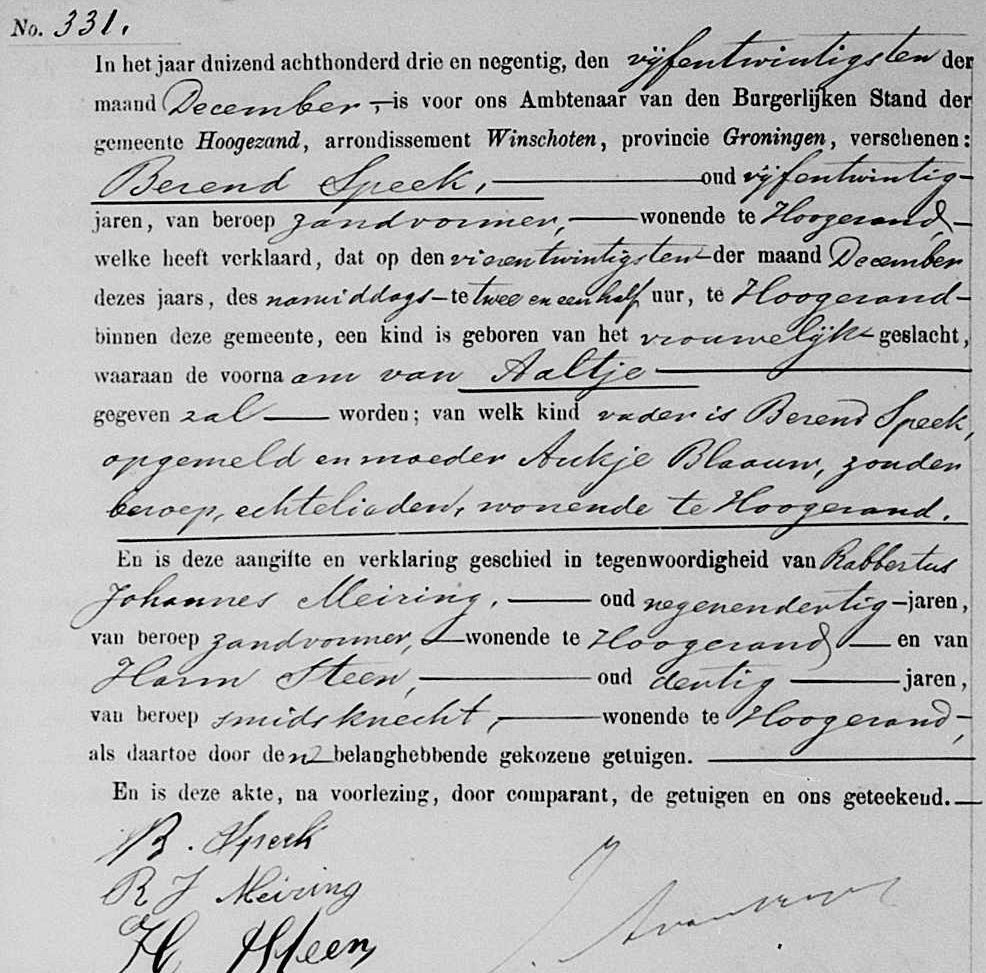 No. 331.
In het jaar duizend achthonderd drie en negentig, den vijfentwintigsten der
maand December, is voor ons Ambtenaar van den Burgerlijken Stand der
gemeente Hoogezand, arrondissement Winschoten, provincie Groningen, verschenen:
Berend Speek, oud vijfentwintig
jaren, van beroep zandvormer, wonende te Hoogezand,
welke heeft verklaard, dat op den vierentwintigsten der maand December
dezes jaars, des namiddags te twee en een half uur, te Hoogezand
binnen deze gemeente, een kind is geboren van het vrouwelijk geslacht,
waaraan de voornaam van Aaltje
gegeven zal worden; van welk kind vader is Berend Speek,
opgemeld en moeder Aukje Blaauw, zonder
beroep, echtelieden, wonende te Hoogezand.
En is deze aangifte en verklaring geschied in tegenwoordigheid van Rabbertus
Johannes Meiring, oud negenendertig jaren,
van beroep zandvormer, wonende te Hoogezand en van
Harm Steen, oud dertig jaren,
van beroep smidsknecht, wonende te Hoogezand,
als daartoe door den belanghebbende gekozene getuigen.
En is deze akte, na voorlezing, door comparant, de getuigen en ons geteekend.
B. Speek
R J Meiring
H Steen